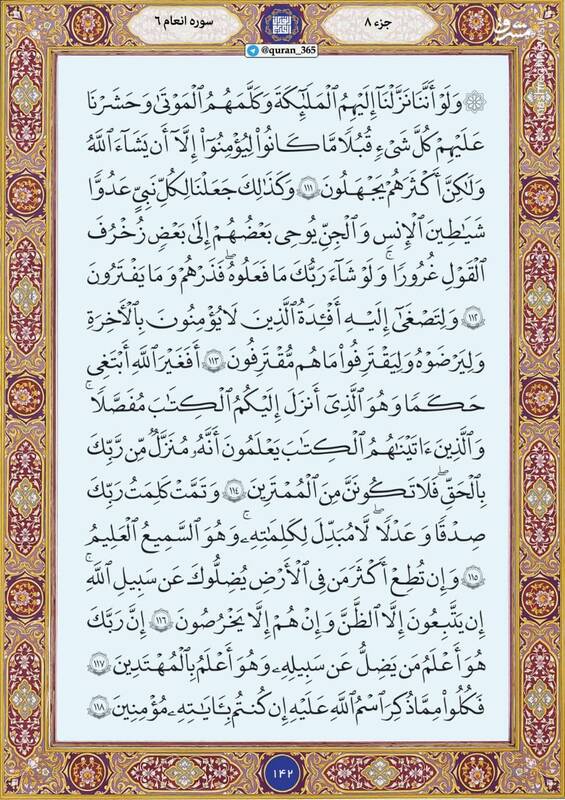 جزء ۸
سوره انعام ۶
@quran_365
مشرق
۞ وَلَوْ أَنَّنَا نَزَّلْنَآ إِلَيْهِمُ ٱلْمَلَٰٓئِكَةَ وَكَلَّمَهُمُ ٱلْمَوْتَىٰ وَحَشَرْنَا
عَلَيْهِمْ كُلَّ شَىْءٍ قُبُلًا مَّا كَانُوا۟ لِيُؤْمِنُوٓا۟ إِلَّآ أَن يَشَآءَ ٱللَّهُ
وَلَٰكِنَّ أَكْثَرَهُمْ يَجْهَلُونَ ۝١١١ وَكَذَٰلِكَ جَعَلْنَا لِكُلِّ نَبِىٍّ عَدُوًّا
شَيَٰطِينَ ٱلْإِنسِ وَٱلْجِنِّ يُوحِى بَعْضُهُمْ إِلَىٰ بَعْضٍ زُخْرُفَ
ٱلْقَوْلِ غُرُورًا ۚ وَلَوْ شَآءَ رَبُّكَ مَا فَعَلُوهُ ۖ فَذَرْهُمْ وَمَا يَفْتَرُونَ
۝١١٢ وَلِتَصْغَىٰٓ إِلَيْهِ أَفْـِٔدَةُ ٱلَّذِينَ لَا يُؤْمِنُونَ بِٱلْءَاخِرَةِ
وَلِيَرْضَوْهُ وَلِيَقْتَرِفُوا۟ مَا هُم مُّقْتَرِفُونَ ۝١١٣ أَفَغَيْرَ ٱللَّهِ أَبْتَغِى
حَكَمًا وَهُوَ ٱلَّذِىٓ أَنزَلَ إِلَيْكُمُ ٱلْكِتَٰبَ مُفَصَّلًا ۚ
وَٱلَّذِينَ ءَاتَيْنَٰهُمُ ٱلْكِتَٰبَ يَعْلَمُونَ أَنَّهُۥ مُنَزَّلٌ مِّن رَّبِّكَ
بِٱلْحَقِّ ۖ فَلَا تَكُونَنَّ مِنَ ٱلْمُمْتَرِينَ ۝١١٤ وَتَمَّتْ كَلِمَتُ رَبِّكَ
صِدْقًا وَعَدْلًا ۚ لَّا مُبَدِّلَ لِكَلِمَٰتِهِۦ ۚ وَهُوَ ٱلسَّمِيعُ ٱلْعَلِيمُ
۝١١٥ وَإِن تُطِعْ أَكْثَرَ مَن فِى ٱلْأَرْضِ يُضِلُّوكَ عَن سَبِيلِ ٱللَّهِ ۚ
إِن يَتَّبِعُونَ إِلَّا ٱلظَّنَّ وَإِنْ هُمْ إِلَّا يَخْرُصُونَ ۝١١٦ إِنَّ رَبَّكَ
هُوَ أَعْلَمُ مَن يَضِلُّ عَن سَبِيلِهِۦ ۖ وَهُوَ أَعْلَمُ بِٱلْمُهْتَدِينَ ۝١١٧
فَكُلُوا۟ مِمَّا ذُكِرَ ٱسْمُ ٱللَّهِ عَلَيْهِ إِن كُنتُم بِـَٔايَٰتِهِۦ مُؤْمِنِينَ ۝١١٨
۱۴۲